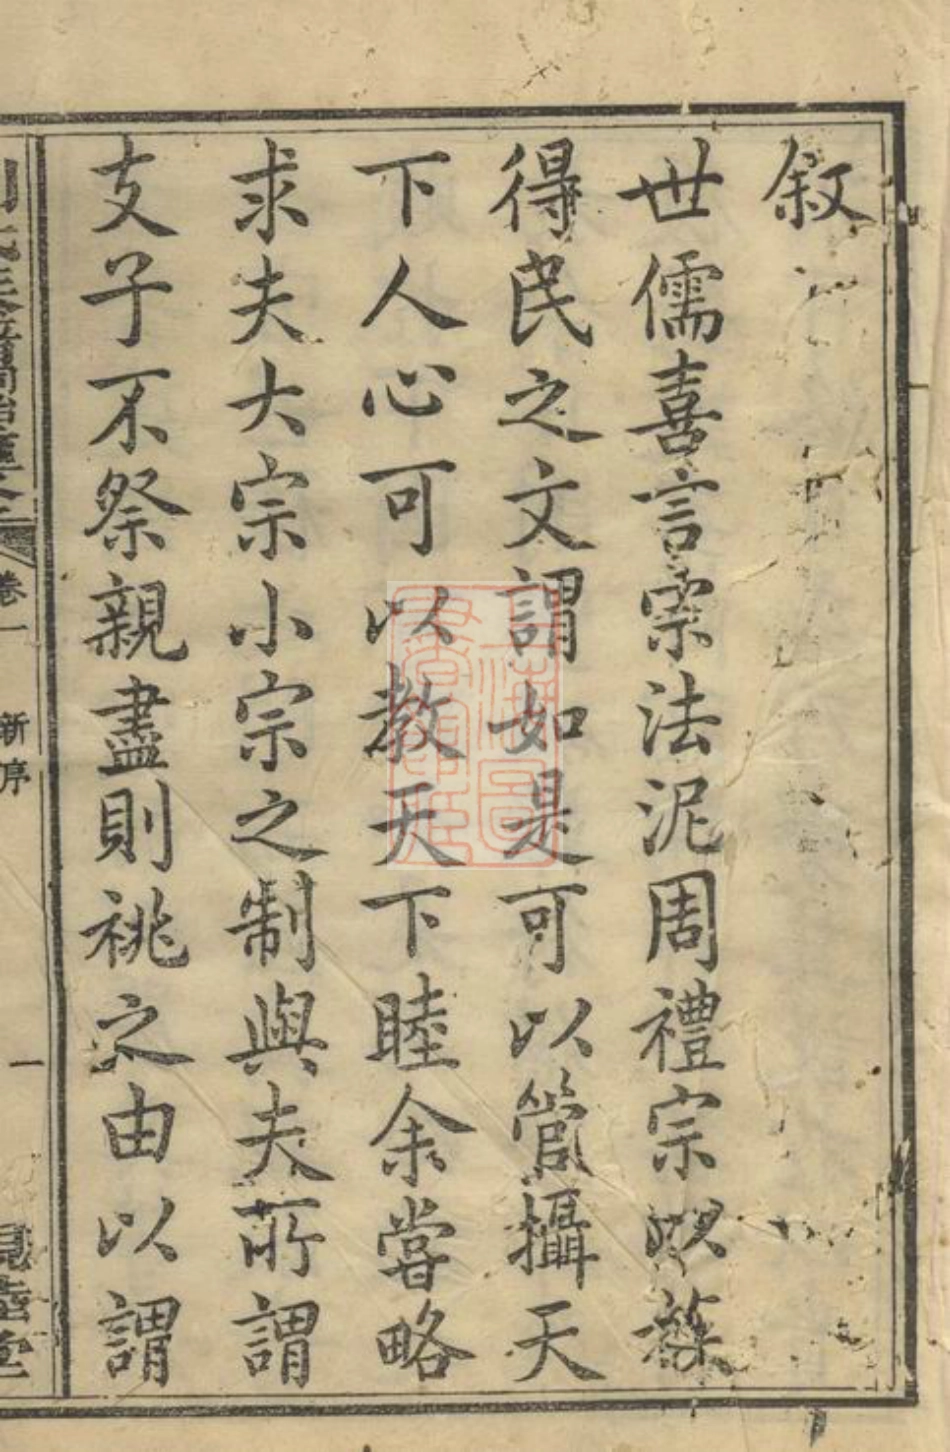 叙
世儒喜言宗法泥周禮宗以族
得民之文謂如是可以管攝天
下人心可以教天下睦余嘗略
求夫大宗小宗之制與夫所謂
支子不祭親盡則祧之由以謂
卷一
新序
一